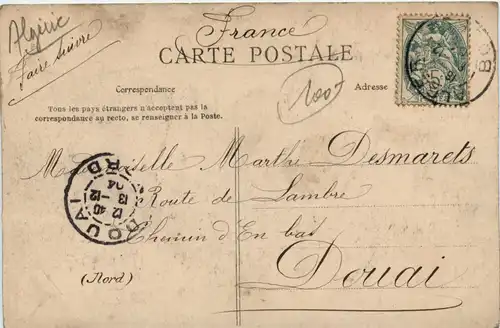 France
Algérie
Faire suivre
CARTE POSTALE
Correspondance
Adresse
Tous les pays étrangers n'acceptent pas la
correspondance au recto, se renseigner à la Poste.
100
Mademoiselle Marthe Desmarets
Route de Lambre
Chemin d'En bas
Douai
(Nord)
DOUAI
12 40
13 -12
04
NORD